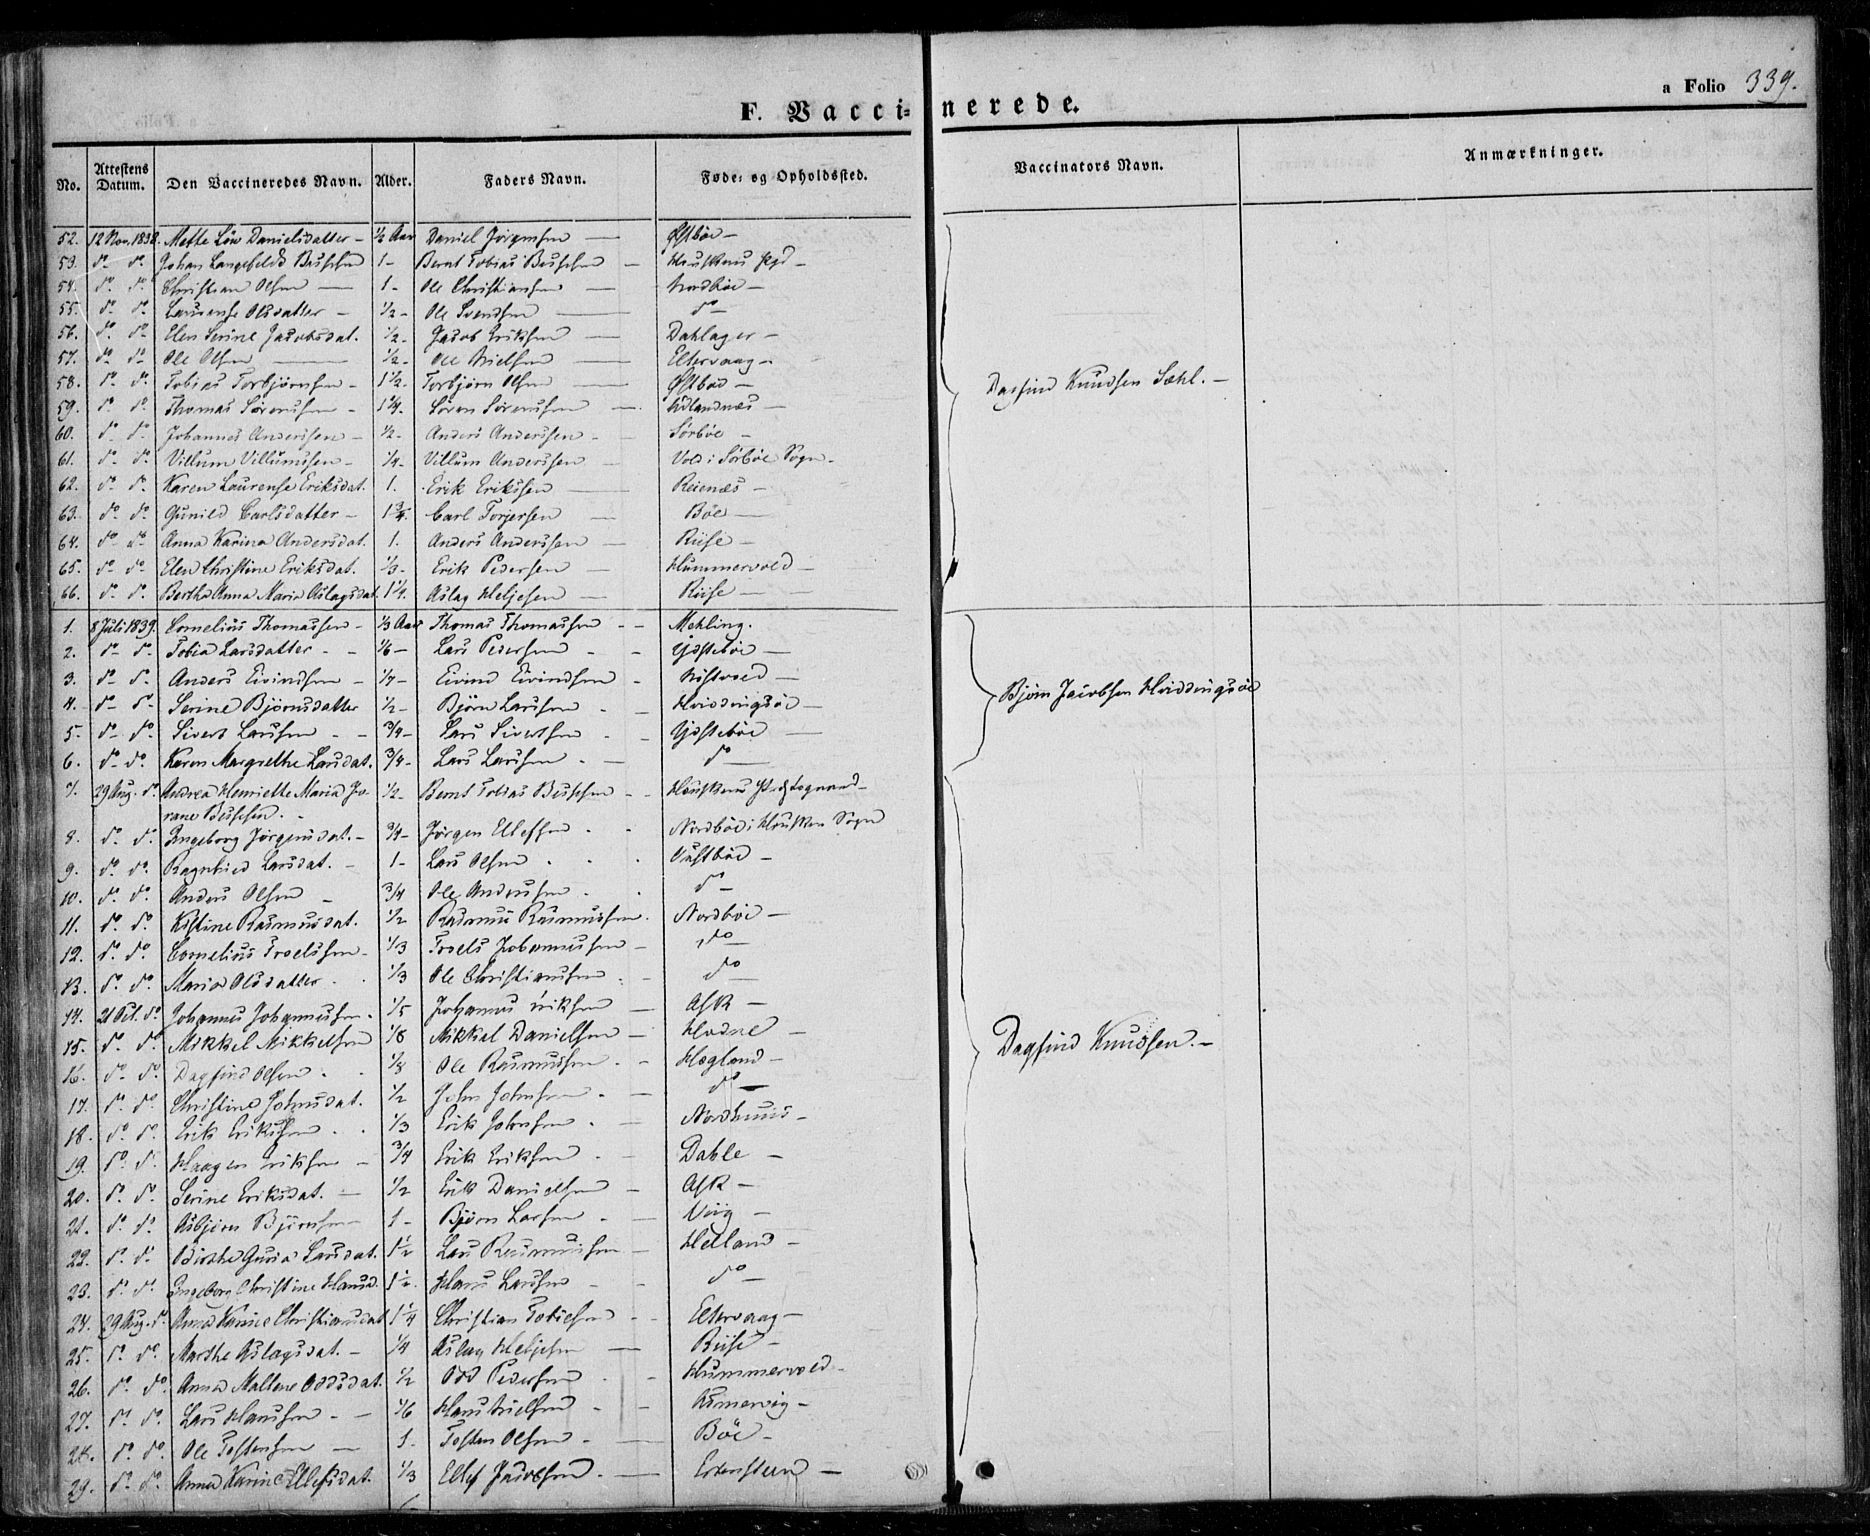 a Folio 339.
F. Vaccinerede.
No. Attestens Datum. Den Vaccineredes Navn. Alder. Faders Navn. Føde- og Opholdssted. Vaccinators Navn. Anmærkninger.
52. 12 Nov. 1838. Mette Danielsdatter – ½ Aar Daniel Jörgensen – Østböe –
53. do do Johan Langefeldt Buschen 1 – Bernt Tobias Buschen –
54. do do Christian Olsen – 1 – Ole Christiansen – Nordböe –
55. do do Laurense Olsdatter – 1/2 – Ole Svendsen – do –
56. do do Elen Serine Jacobsdat. 1/2 – Jacob Eriksen – Dahlager –
57. do do Ole Olsen – 1/2 – Ole Nielsen – Eltervaag –
58. do do Tobias Torbjörnsen – 1½ – Torbjörn Olsen – Østböe –
59. do do Thomas Sörensen – 1¼ – Sören Sörensen – Udlandnæs –
Dagfind Knudsen Sæhl. –
60. do do Johannes Anderssen – 1/2 – Anders Anderssen – Sörböe –
61. do do Villum Villumssen – 1/4 – Villum Anderssen – Vold i Sörböe Sogn –
62. do do Karen Laurense Eriksdat. 1. Erik Erikssen – Reienæs –
63. do do Gunild Carlsdatter – 1¾. Carl Torjersen – Böe –
64. do do Anna Karina Andersdat. 1. Anders Anderssen – –
65. do do Elen Christine Eriksdat. 1/3 – Erik Pedersen – Hummervold –
66. do do Bertha Anna Maria Aslagsdat. 1¼. Aslag Heljesen – –
1. 8 Juli 1839. Cornelius Thomassen – 1/3 Aar Thomas Thomassen – Mehling.
2. do do Tobia Larsdatter – 1/6 – Lars Pedersen – Ydsteböe –
3. do do Anders Eivindsen – 1/7 – Eivind Eivindsen –
4. do do Serine Björnsdatter 1/2 – Björn Larssen – Hviddingsöe –
Björn Jacobsen Hviddingsöe
5. do do Sivert Larssen – 3/4 – Lars Sivertsen – Ydsteböe –
6. do do Karen Margrethe Larsdat. 3/4 – Lars Larssen – do –
7. 29 Aug. do Andrea Henriette Maria Jo-
rane Buschen. 1/2 – Bernt Tobias Buschen –
8. do do Ingeborg Jörgensdat. – 3/4 – Jörgen Ellefsen – Nordböe i Sogn
9. do do Ragnhild Larsdat. – 1 – Lars Olsen –
10. do do Anders Olsen – 3/4 Ole Anderssen – do –
11. do do Kistine Rasmusdat. 1/2 Rasmus Rasmussen. Nordböe –
12. do do Cornelius Troelssen – 1/3 Troels Johannessen – do –
13. do do Maria Olsdatter 1/3 Ole Christiansen – do –
14. 21 Oct. do Johannes Johannessen. 1/5 Johannes Eriksen – Ask –
15. do do Mikkel Mikkelsen 1/8 Mikkel Danielsen – Hodne –
16. do do Dagfind Olsen 1/8 Ole Rasmussen – Hægland –
Dagfind Knudsen. –
17. do do Christine Johnsdat. 1/2 John Johnsen – do –
18. do do Erik Erikssen 1/3 Erik Johnsen – Nordhuus –
19. do do Haagen Eriksen – 3/4 Erik Eriksen – Dahle –
20. do do Serine Eriksdat. – 1/2 Erik Danielsen – Ask –
21. do do Asbjörn Björnsen 1 – Björn Larsen – Viig –
22. do do Birthe Guria Larsdat. 1½ Lars Rasmussen – Helland –
23. do do Ingeborg Christine Hansd. 1½. Hans Larssen – do –
24. 29 Aug. do Anna Karine Christiansdat. 1¼ Christian Tobiesen – Eltervaag –
25. do do Marthe Aslagsdat. – 1/4 Aslag Heljesen –
26. do do Anna Maltene Oddsdat. 1/2 Odd Pedersen – Hummervold –
27. do do Lars Hanssen – 1/6 Hans Nielsen –
28. do do Ole Tostensen – 1. Tosten Olsen – Böe –
29. do do Anna Karine Ellefsdat. 1/3 Ellef Jacobsen. –